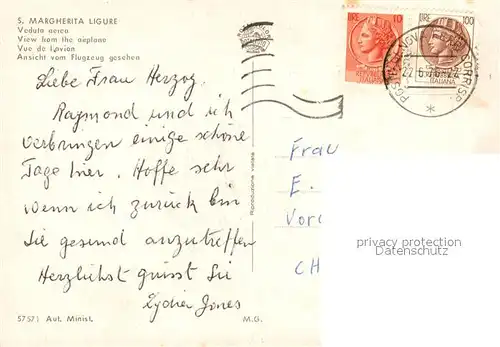 S. MARGHERITA LIGURE
Veduta aerea
View from the airplane
Vue de l'avion
Ansicht vom Flugzeug gesehen
LIRE 10
LIRE 100
ITALIANA
Liebe Frau Herzog.
Raymond und ich
verbringen einige schöne
Tage hier. Hoffe sehr
wenn ich zurück bin
Sie gesund anzutreffen
Herzlichst grüsst Sie
Lydia Jones
Riproduzione vietata
Frau
E.
CH
privacy protection
Datenschutz
57571 Aut. Minist.
M.G.